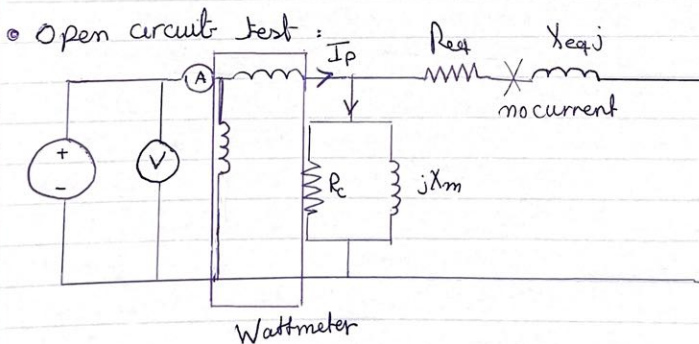 Open circuit test :
Ip
Req
Xeqj
no current
A
+
-
V
Rc
jXm
Wattmeter